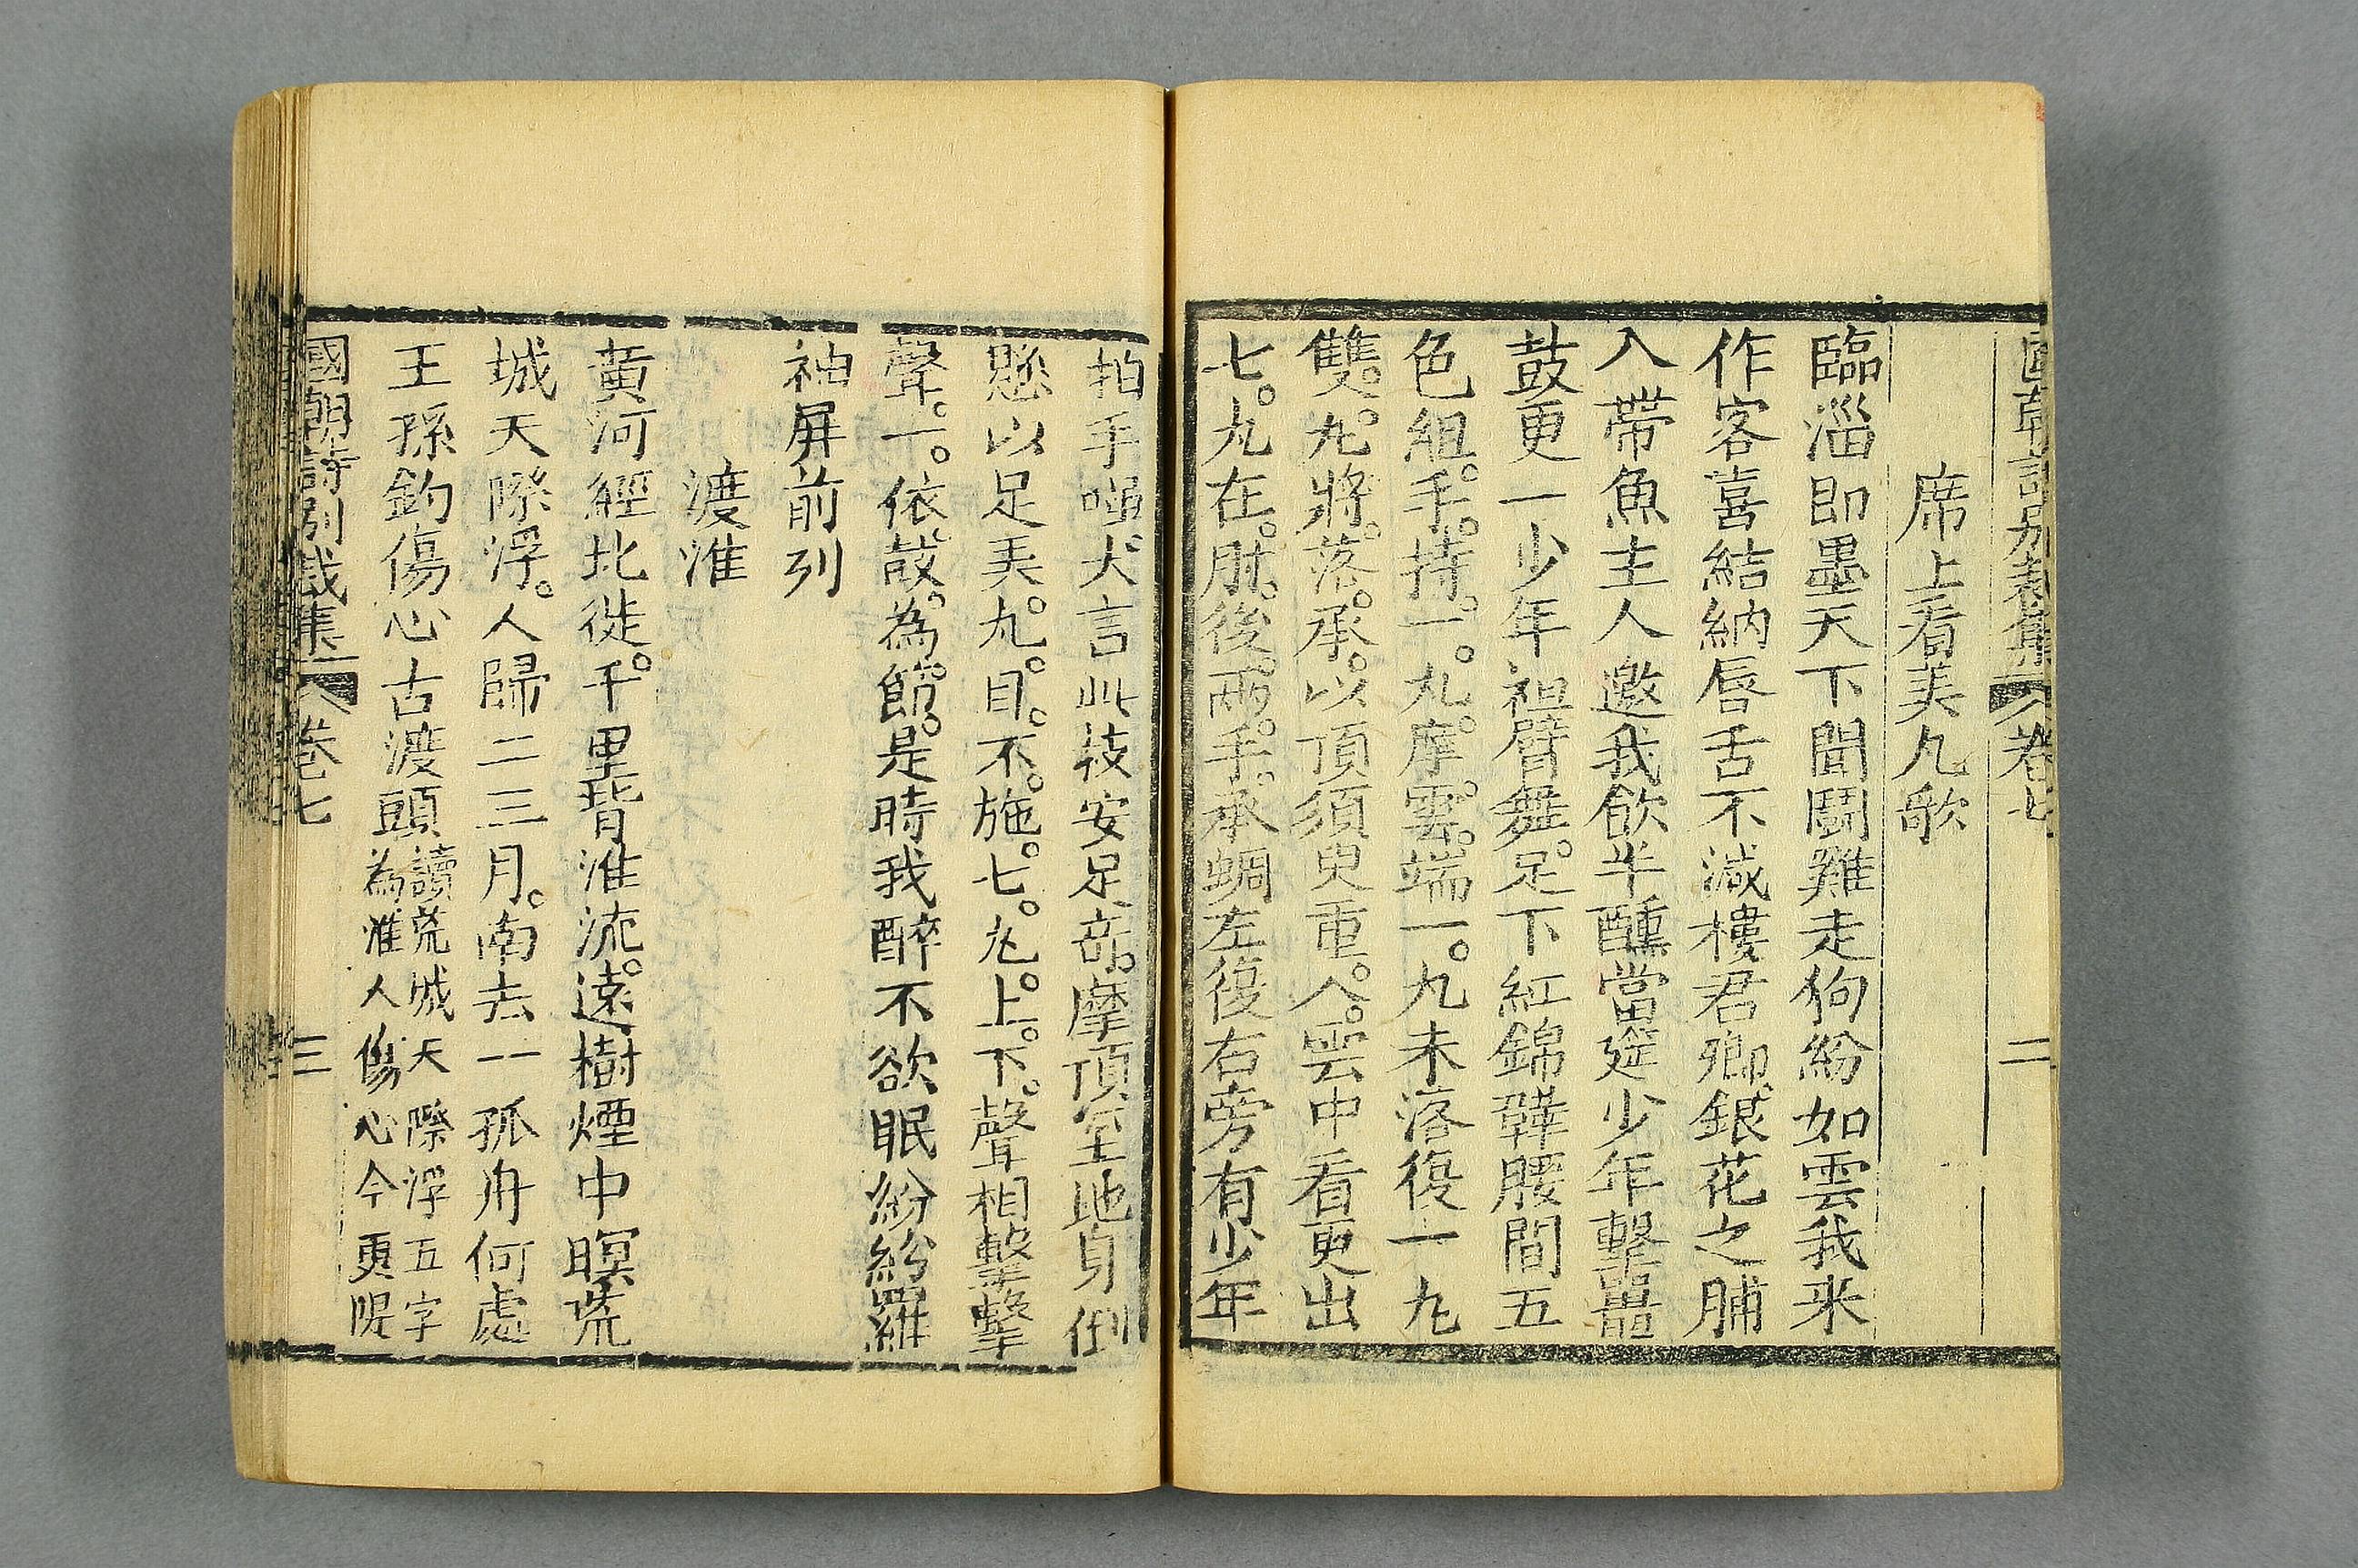 國朝詩別裁集 卷七 二
席上看美丸歌
臨淄即墨天下聞鬪雞走狗紛如雲我来
作客喜結納唇舌不減樓君卿銀花之脯
入帶魚主人邀我飲半醺當筵少年擊畾
鼓更一少年袒臂舞。足下紅錦韡腰間五
色組。手。持。一。丸。摩。雲。端一。丸未落復一丸
雙。丸。將。落。承。以頂須臾重。入。雲中看更出
七。丸在。肘。後。兩。手。承蜩左復右旁有少年
拍手嗤犬言此技安足竒。摩頂至地身倒
懸以足弄。丸。目。不。施。七。丸。上。下。聲相擊擊
聲。一。依。鼓。為。節。是時我醉不欲眠紛紛羅
袖屏前列
渡淮
黄河經北徙。千里背淮流。遠樹煙中暝荒
城天際浮。人歸二三月。南去一孤舟何處
王孫釣傷心古渡頭
讀荒城天際浮五字
為淮人傷心今更隄
國朝詩別裁集 卷七 三